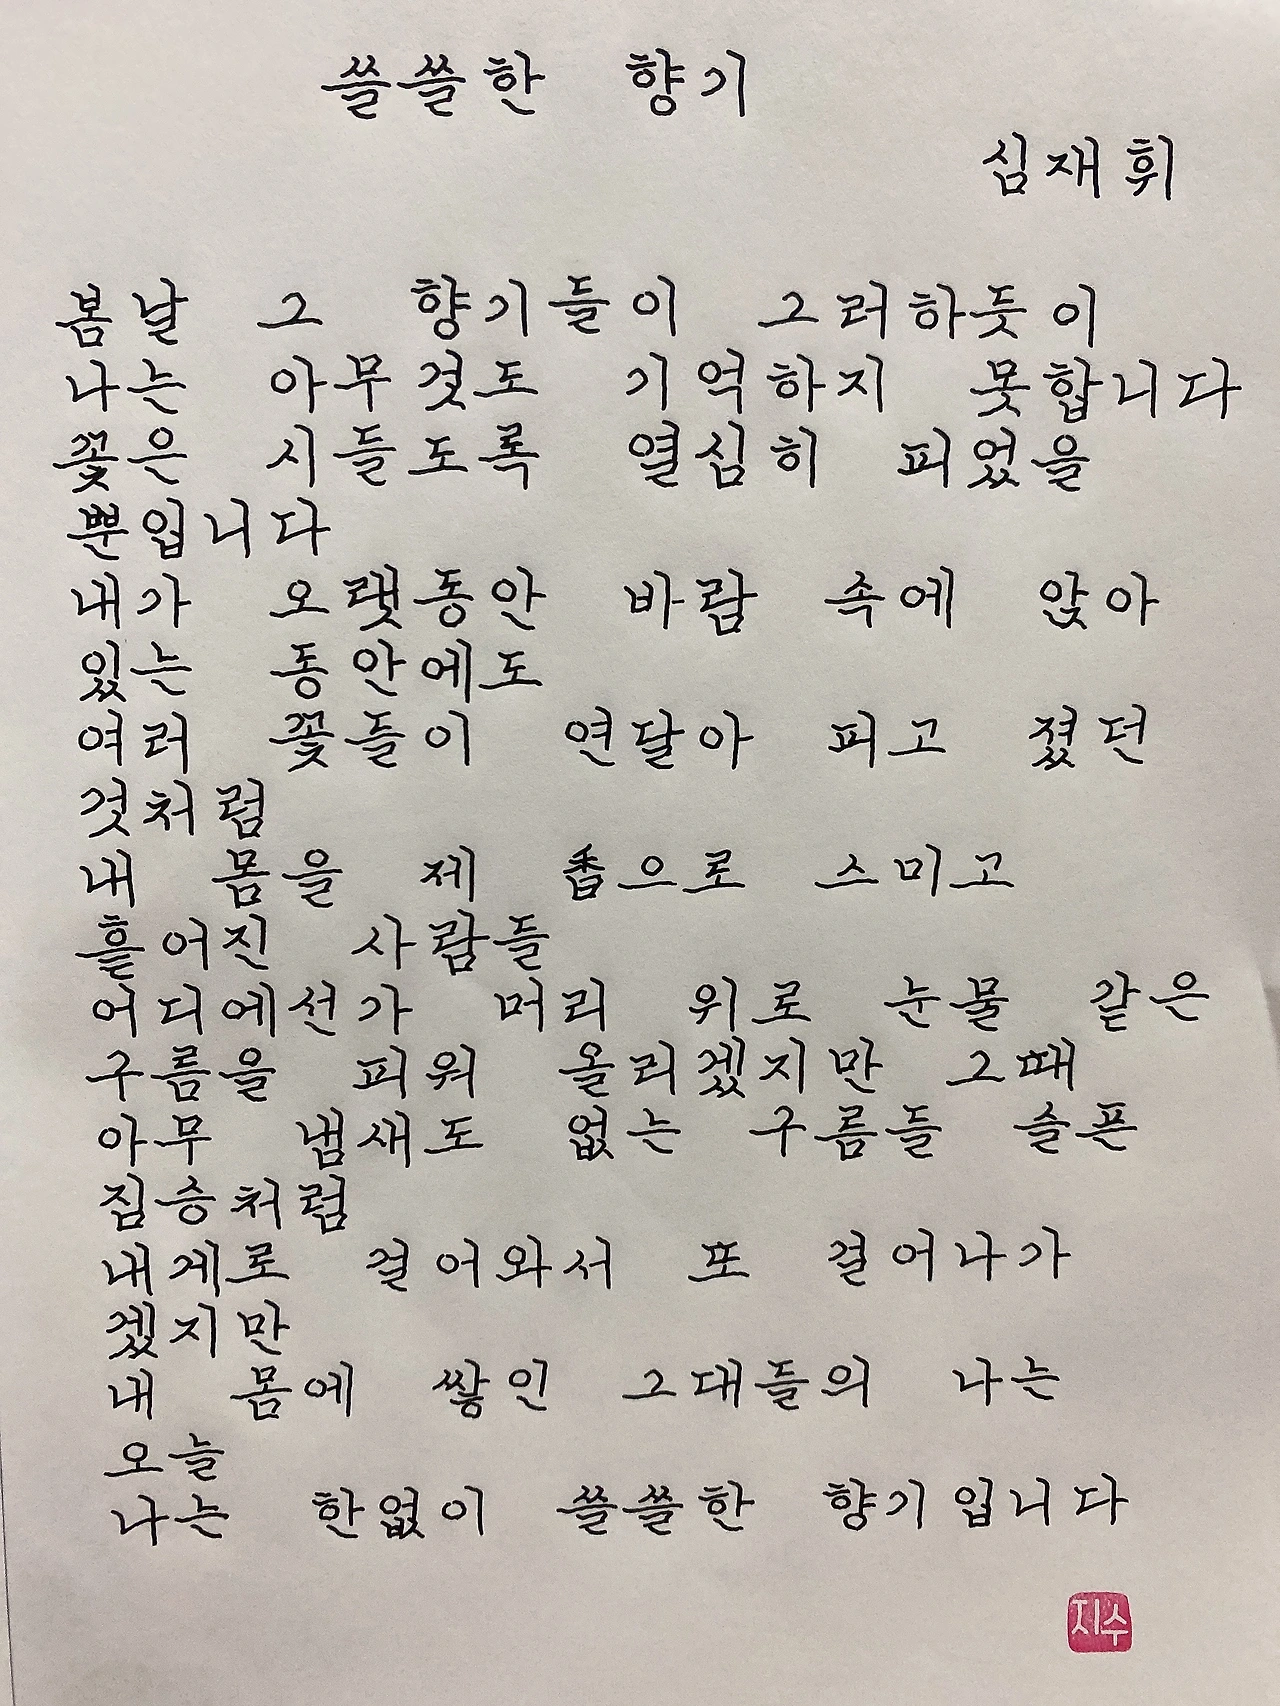 쓸쓸한 향기
심재휘
봄날 그 향기들이 그러하듯이
나는 아무것도 기억하지 못합니다
꽃은 시들도록 열심히 피었을
뿐입니다
내가 오랫동안 바람 속에 앉아
있는 동안에도
여러 꽃들이 연달아 피고 졌던
것처럼
내 몸을 제 흡으로 스미고
흩어진 사람들
어디에선가 머리 위로 눈물 같은
구름을 피워 올리겠지만 그때
아무 냄새도 없는 구름들 슬픈
짐승처럼
내게로 걸어와서 또 걸어나가
겠지만
내 몸에 쌓인 그대들의 나는
오늘
나는 한없이 쓸쓸한 향기입니다
지수